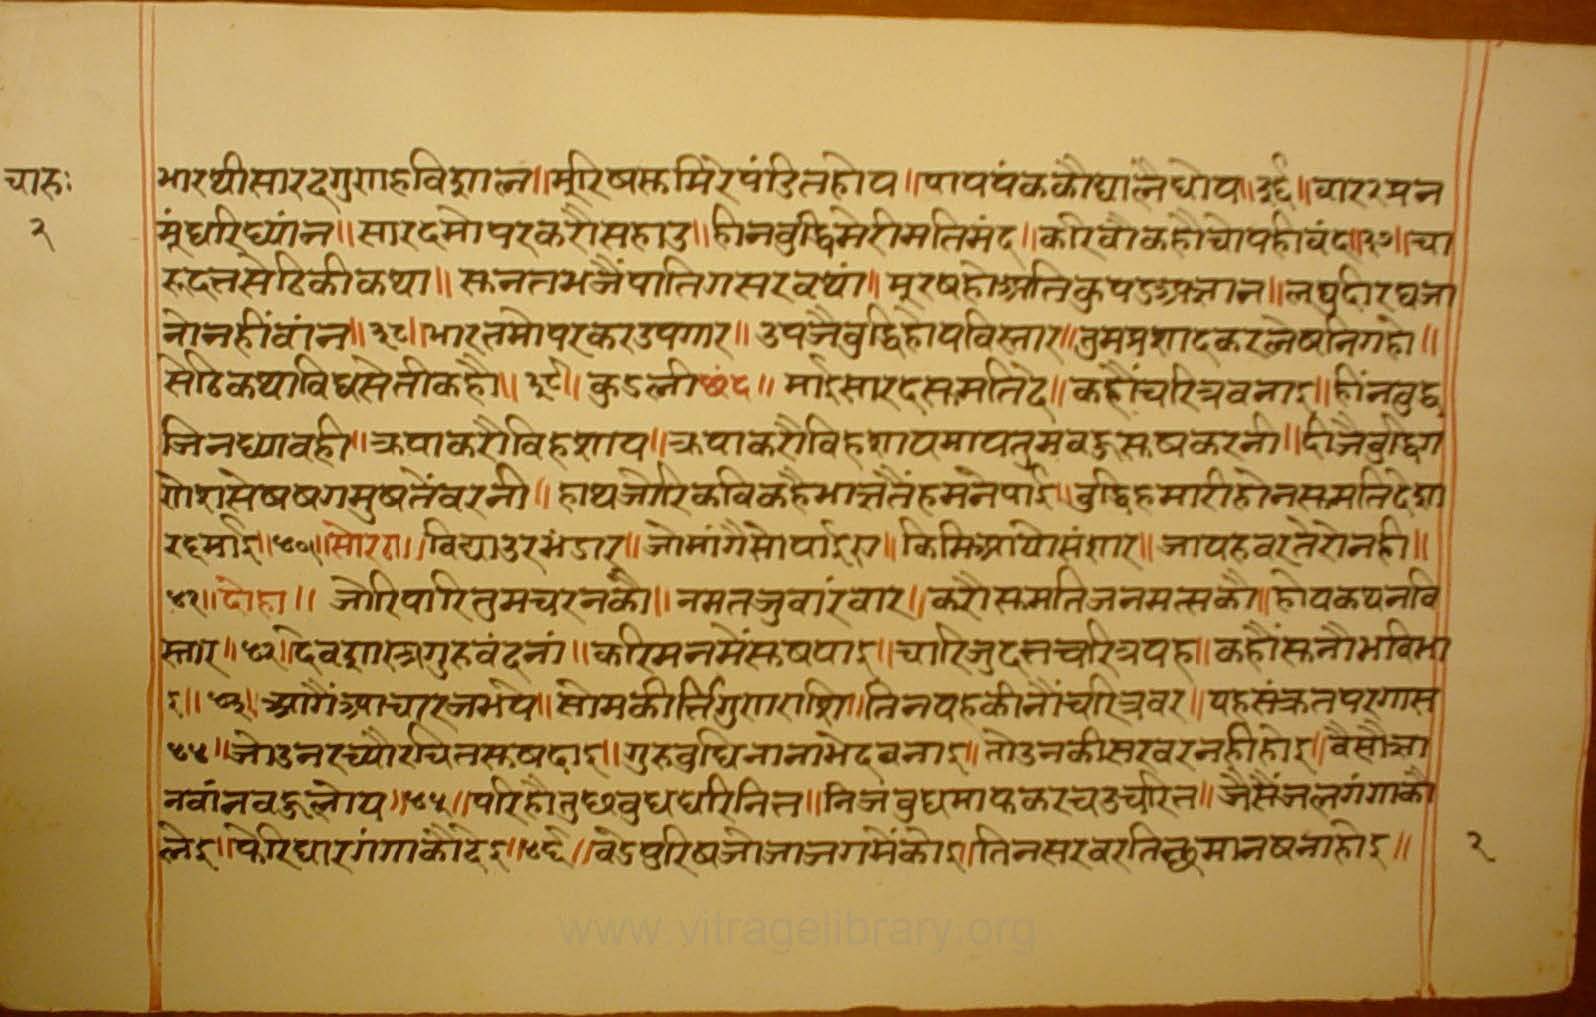 चारु॰
२
भारथीसारदगुणहविशाल॥मूरिषसुमिरेपंडितहोय॥पापपंककौंघालैधोय॥३६॥बाररमन
मूंधरिध्यांन॥सारदमोपरकरौसहाउ॥हीनबुद्धिमेरीमतिमंद॥करिवौकहौचोपहीबंद॥३७॥चा
रुदत्तसेठिकीकथा॥सुनतभजैंपातिगसरवथां॥मूरषहोअतिकुपडअज्ञान॥लघुदीरघजा
नोनहींवांन॥३८॥भारतमोपरकरउपगार॥उपजैबुद्धिहोयविस्तार॥तुमप्रशादकरलेषनिगहो॥
सेठिकथाविधसेतीकहौ॥३९॥कुडलीछंद॥माईसारदसुमतिदे॥कहौंचरित्रबनाइ॥हींनबुद्ध
जिनध्यावही॥क्रपाकरौविहशाय॥क्रपाकरौविहशायमायतुमबहुसुषकरनी॥दीजैबुद्धिग
णेशसेषषगमुषतेंवरनी॥हाथजोरिकविकहैभाजतैंहमनेपाई॥बुद्धिहमारीहोनसुमतिदेशा
रदमाई॥४०॥सोरठा॥विद्याउरभंडार॥जोमांगैसोपाई॥किमिआयोसंशार॥जापहवरतेरोनही॥
४१॥दोहा॥जोरिपारितुमचरनकौ॥नमतजुवारंवार॥करौसुमतिजनमत्सकौ॥होयकथनवि
स्तार॥४२॥देवशास्त्रगुरुवंदनां॥करिमनमेंसुषपाइ॥चारिजुदत्तचरित्रयह॥कहौंसुनौभविभा
इ॥४३॥आगैंआचारजभये॥सोमकीर्त्तिगुणराशि॥तिनयहकीनौंचरित्रवर॥यहसंक्रतपरगास
४४॥जोउनरच्यौरचितसुषदाइ॥गुरुबुधिनानाभेदबनाइ॥तोउनकीसरवरनहीहोइ॥वैसौज्ञा
नवांनबहुलोय॥४५॥परिहौतुछबुधधरिनित॥निजबुधमाफकरचउचरित॥जैसैंजलगंगाकौ
लेइ॥फेरिधारगंगाकौंदेइ॥४६॥वेडपुरिषजोजाजगमेंकोइ॥तिनसरवरतिछमानषनाहोइ॥
२
www.vitragelibrary.org